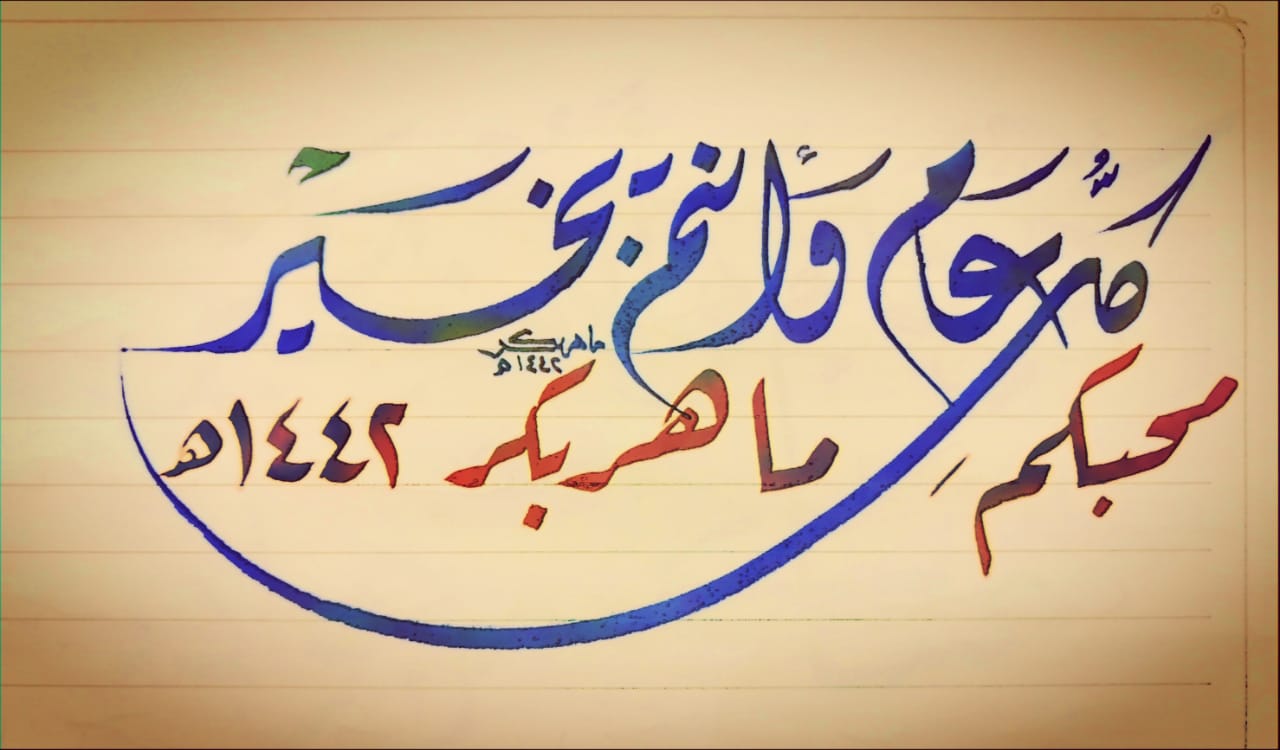 كلُّ عام وأنتم بخير
ماهر بكر
١٤٤٢ه
محبكم ماهر بكر ١٤٤٢ه